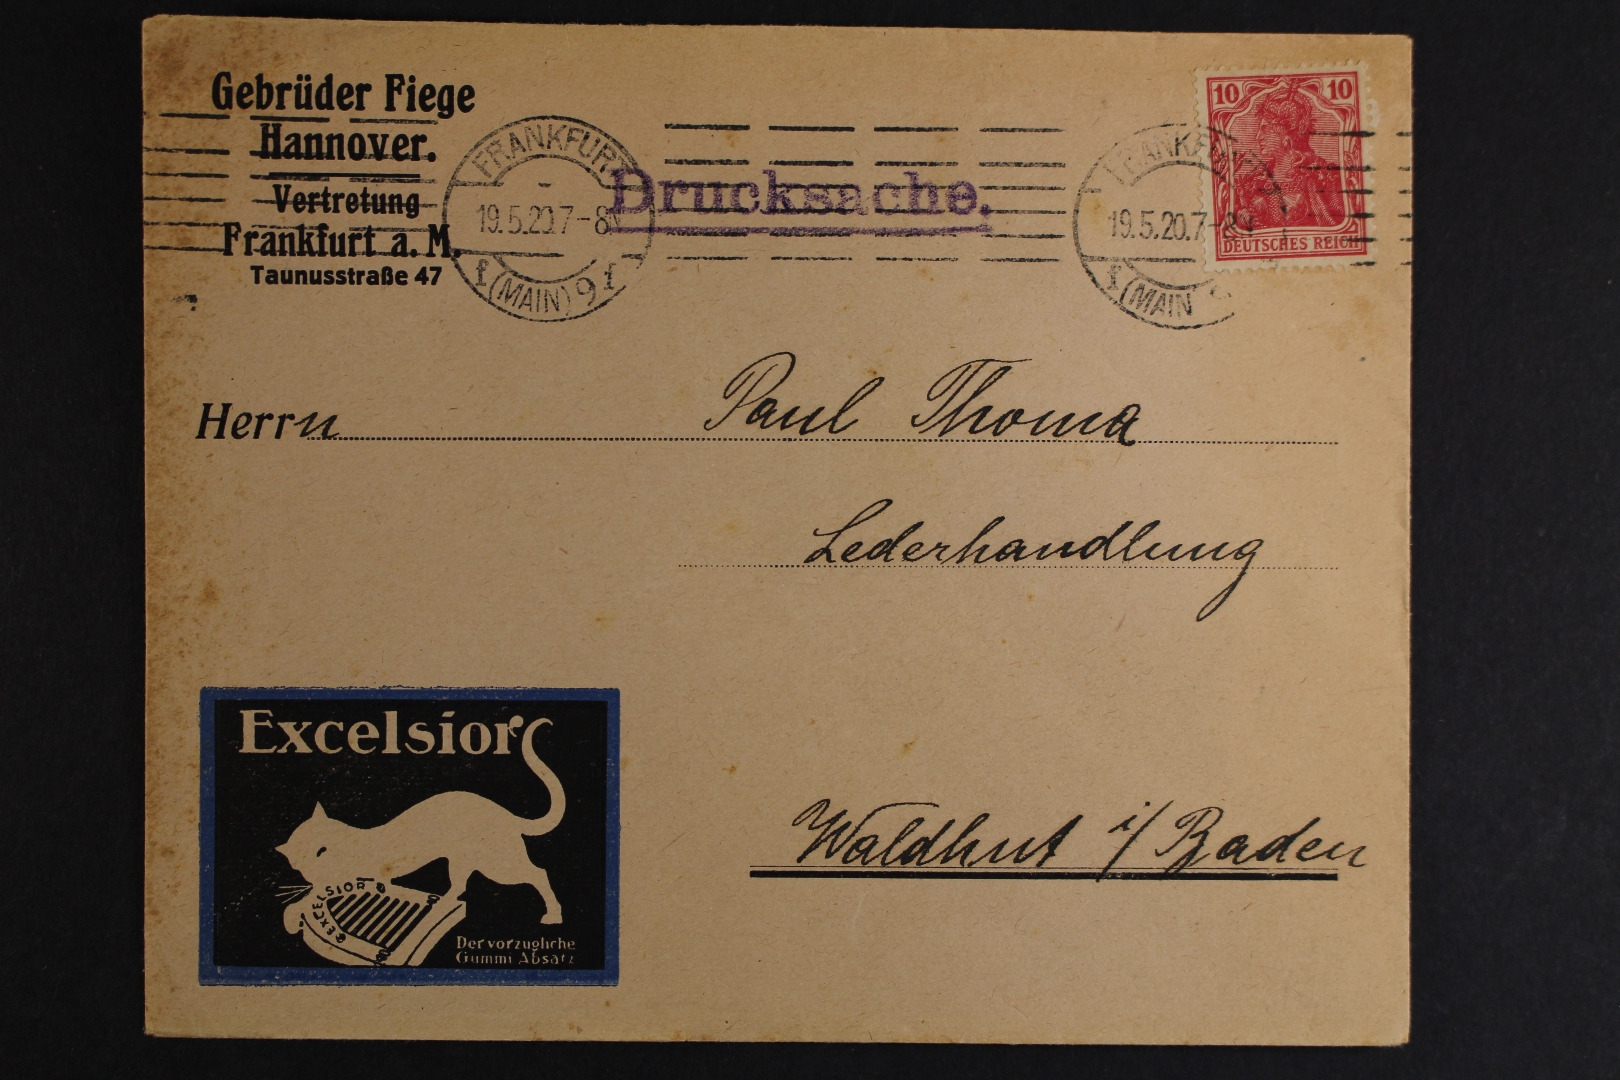 Gebrüder Fiege
Hannover.
Vertretung
Frankfurt a. M.
Taunusstraße 47
FRANKFURT
19.5.20.7-8V
f (MAIN) 9 f
Drucksache.
FRANKFURT
19.5.20.7-8V
f (MAIN 9
10 10
DEUTSCHES REICH
Herrn Paul Thoma
Lederhandlung
Waldhut i/Baden
Excelsior
EXCELSIOR
Der vorzugliche
Gummi Absatz